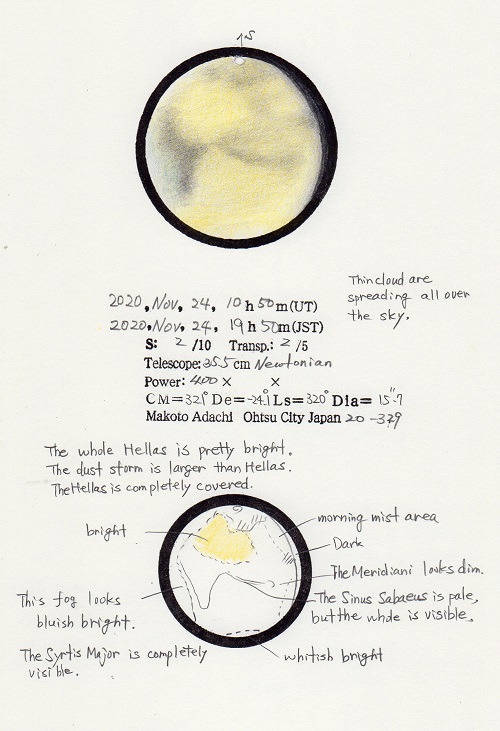 S
Thin cloud are
spreading all over
the sky.
2020, Nov, 24, 10 h 50 m (UT)
2020, Nov, 24, 19 h 50 m (JST)
S: 2 /10 Transp.: 2 /5
Telescope: 35.5 cm Newtonian
Power: 400 × ×
CM= 321° De= -24.1° Ls= 320° Dia= 15".7
Makoto Adachi Ohtsu City Japan 20 -379
The whole Hellas is pretty bright.
The dust storm is larger than Hellas.
The Hellas is completely covered.
bright
morning mist area
Dark
The Meridiani looks dim.
This fog looks
bluish bright.
The Sinus Sabaeus is pale,
but the whole is visible.
The Syrtis Major is completely
visible.
whitish bright